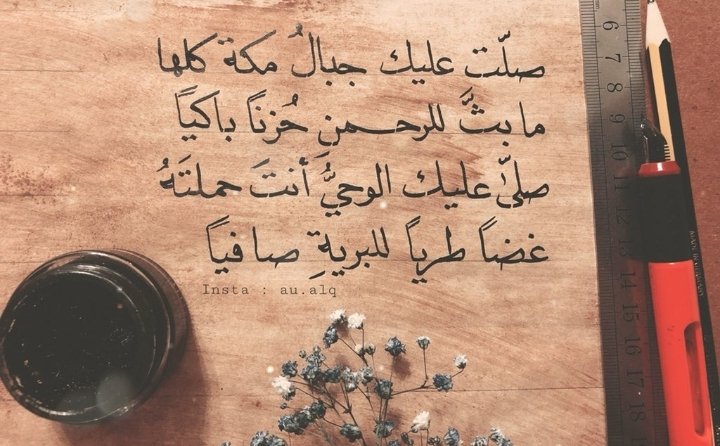 صلّت عليك جبالُ مكة كلها
ما بثَّ للرحمنِ حُزناً باكياً
صلىّ عليك الوحيُّ أنتَ حملتَهُ
غضاً طرياً للبريةِ صافياً
Insta : au.alq
6
7
8
9
10
11
12
13
14
15
16
17
18